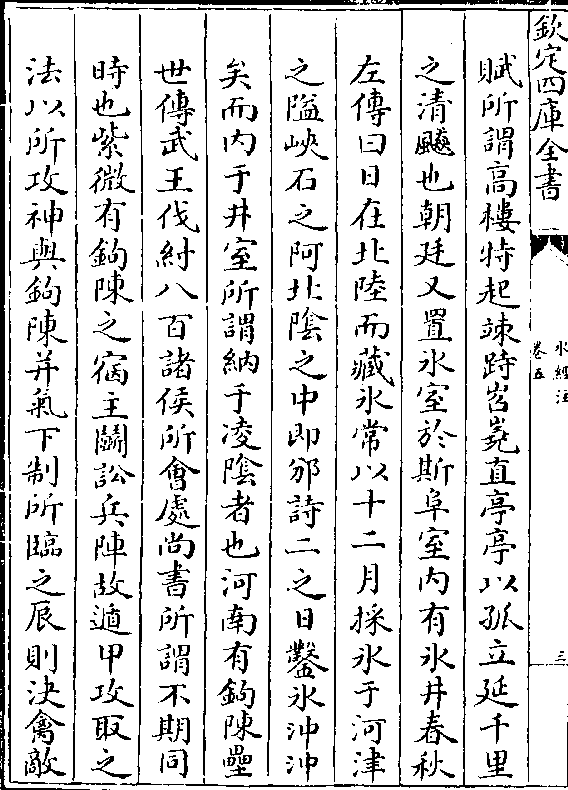 欽定四庫全書
水經注
卷五
三
賦所謂高樓特起竦跱岧嶤直亭亭以孤立延千里
之清飈也朝廷又置氷室於斯阜室内有氷井春秋
左傳曰日在北陸而藏氷常以十二月採氷于河津
之隘峽石之阿北陰之中即邠詩二之日鑿氷沖沖
矣而内于井室所謂納于凌陰者也河南有鉤陳壘
世傳武王伐紂八百諸侯所會處尚書所謂不期同
時也紫微有鉤陳之宿主鬭訟兵陣故遁甲攻取之
法以所攻神與鉤陳并氣下制所臨之辰則決禽敵